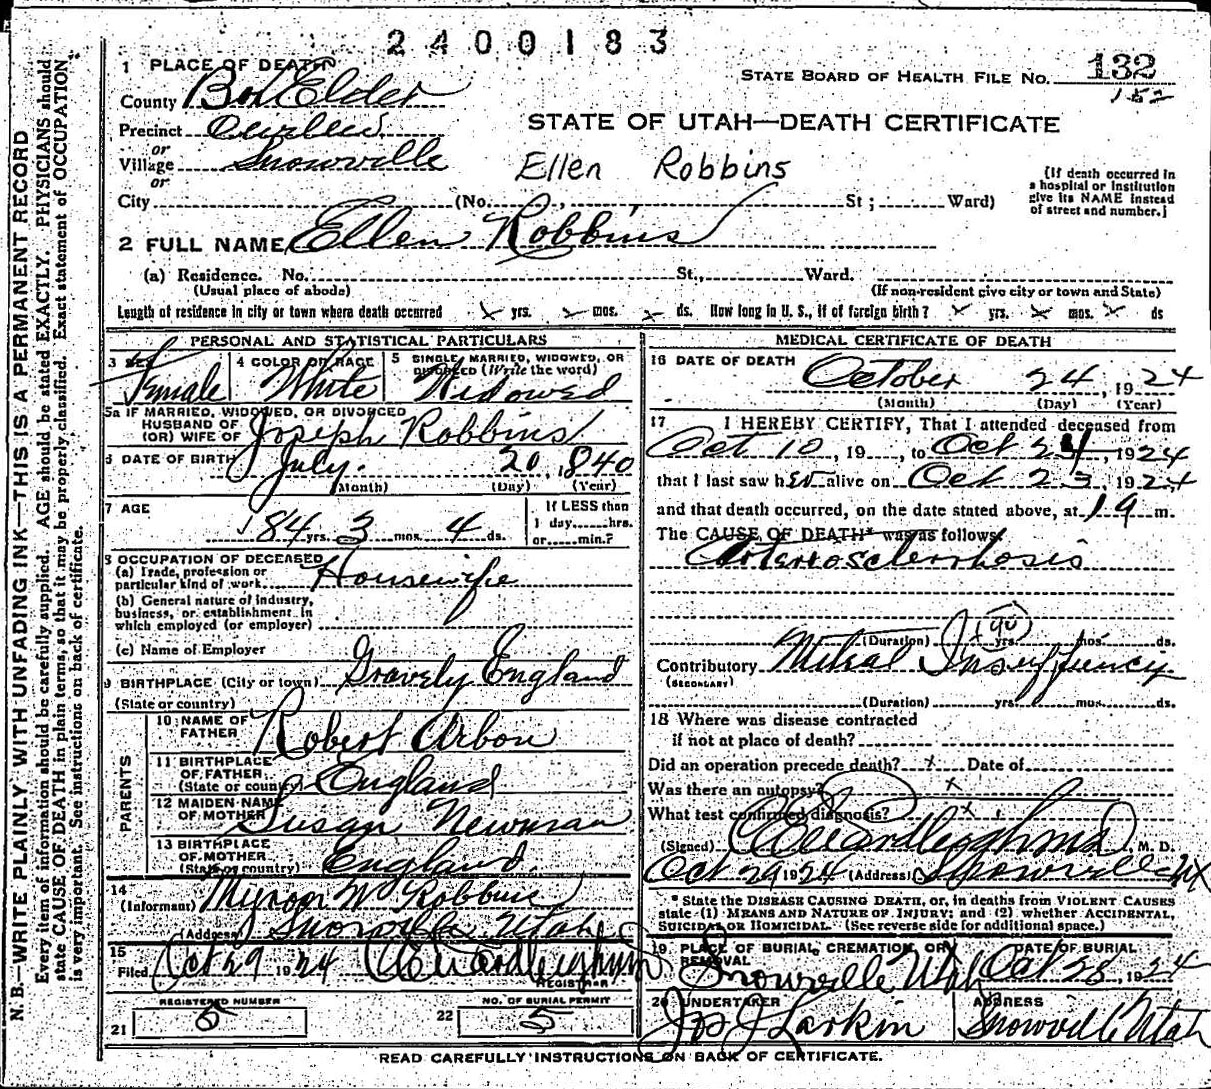 2400183
1 PLACE OF DEATH
STATE BOARD OF HEALTH FILE NO. 132
152
County Box Elder
Precinct
STATE OF UTAH—DEATH CERTIFICATE
or
Village Snowville
Ellen Robbins
or
City (No. , St ; Ward)
(If death occurred in a hospital or institution give its NAME instead of street and number.)
2 FULL NAME Ellen Robbins
(a) Residence. No. St., Ward.
(Usual place of abode) (If non-resident give city or town and State)
Length of residence in city or town where death occurred x yrs. x mos. x ds. How long in U. S., if of foreign birth? x yrs. x mos. x ds
PERSONAL AND STATISTICAL PARTICULARS
3 SEX Female
4 COLOR OR RACE White
5 SINGLE, MARRIED, WIDOWED, OR DIVORCED (Write the word) Widowed
5a IF MARRIED, WIDOWED, OR DIVORCED
HUSBAND OF
(OR) WIFE OF Joseph Robbins
6 DATE OF BIRTH July 20, 1840
(Month) (Day) (Year)
7 AGE
84 yrs. 3 mos. 4 ds.
If LESS than
1 day hrs.
or min.?
8 OCCUPATION OF DECEASED
(a) Trade, profession or
particular kind of work Housewife
(b) General nature of industry,
business, or establishment in
which employed (or employer)
(c) Name of Employer
9 BIRTHPLACE (City or town) Gravely England
(State or country)
PARENTS
10 NAME OF
FATHER Robert Arbon
11 BIRTHPLACE
OF FATHER
(State or country) England
12 MAIDEN NAME
OF MOTHER Susan Newman
13 BIRTHPLACE
OF MOTHER
(State or country) England
14
(Informant) Myron W Robbins
(Address) Snowville Utah
15
Filed Oct 29 1924
REGISTRAR
REGISTERED NUMBER
21 5
NO. OF BURIAL PERMIT
22 5
MEDICAL CERTIFICATE OF DEATH
16 DATE OF DEATH October 24, 1924
(Month) (Day) (Year)
17 I HEREBY CERTIFY, That I attended deceased from
Oct 10, 19 , to Oct 24, 1924
that I last saw her alive on Oct 23, 1924
and that death occurred, on the date stated above, at 19 m.
The CAUSE OF DEATH* was as follows:
Arteriosclerhosis
(Duration) yrs. mos. ds.
90
Contributory Mitral Insuffiency
(SECONDARY)
(Duration) yrs. mos. ds.
18 Where was disease contracted
if not at place of death?
Did an operation precede death? x Date of
Was there an autopsy? x
What test confirmed diagnosis? x
(Signed) M. D.
Oct 29 1924 (Address) Snowville Ut
* State the DISEASE CAUSING DEATH, or, in deaths from VIOLENT CAUSES
state (1) MEANS AND NATURE OF INJURY; and (2) whether ACCIDENTAL,
SUICIDAL OR HOMICIDAL. (See reverse side for additional space.)
19 PLACE OF BURIAL, CREMATION, OR
REMOVAL
Snowville Utah
DATE OF BURIAL
Oct 28, 1924
20 UNDERTAKER
Jos J Larkin
ADDRESS
Snowville Utah
READ CAREFULLY INSTRUCTIONS ON BACK OF CERTIFICATE.
N. B.—WRITE PLAINLY WITH UNFADING INK—THIS IS A PERMANENT RECORD
Every item of information should be carefully supplied. AGE should be stated EXACTLY. PHYSICIANS should
state CAUSE OF DEATH in plain terms, so that it may be properly classified. Exact statement of OCCUPATION
is very important. See instructions on back of certificate.